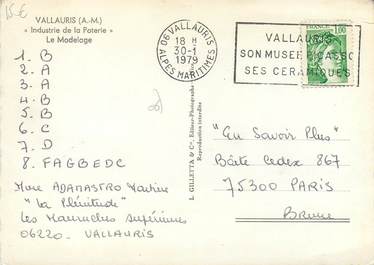 15 €
VALLAURIS (A.-M.)
« Industrie de la Poterie »
Le Modelage
06 VALLAURIS
18 H
30-1
1979
ALPES MARITIMES
VALLAURIS
SON MUSEE PICASSO
SES CERAMIQUES
1,00
1. B
2. A
3. A
4. B
5. B
6. C
7. D
8. FAGBEDC
Mme ADANASTRO Martine
"La Plénitude"
Les Mauruches supérieures
06220. VALLAURIS
L. GILLETTA & Cie, Editeur-Photographe
Reproduction interdite
"En Savoir Plus"
Boîte Cedex 867
75300 PARIS
Brune